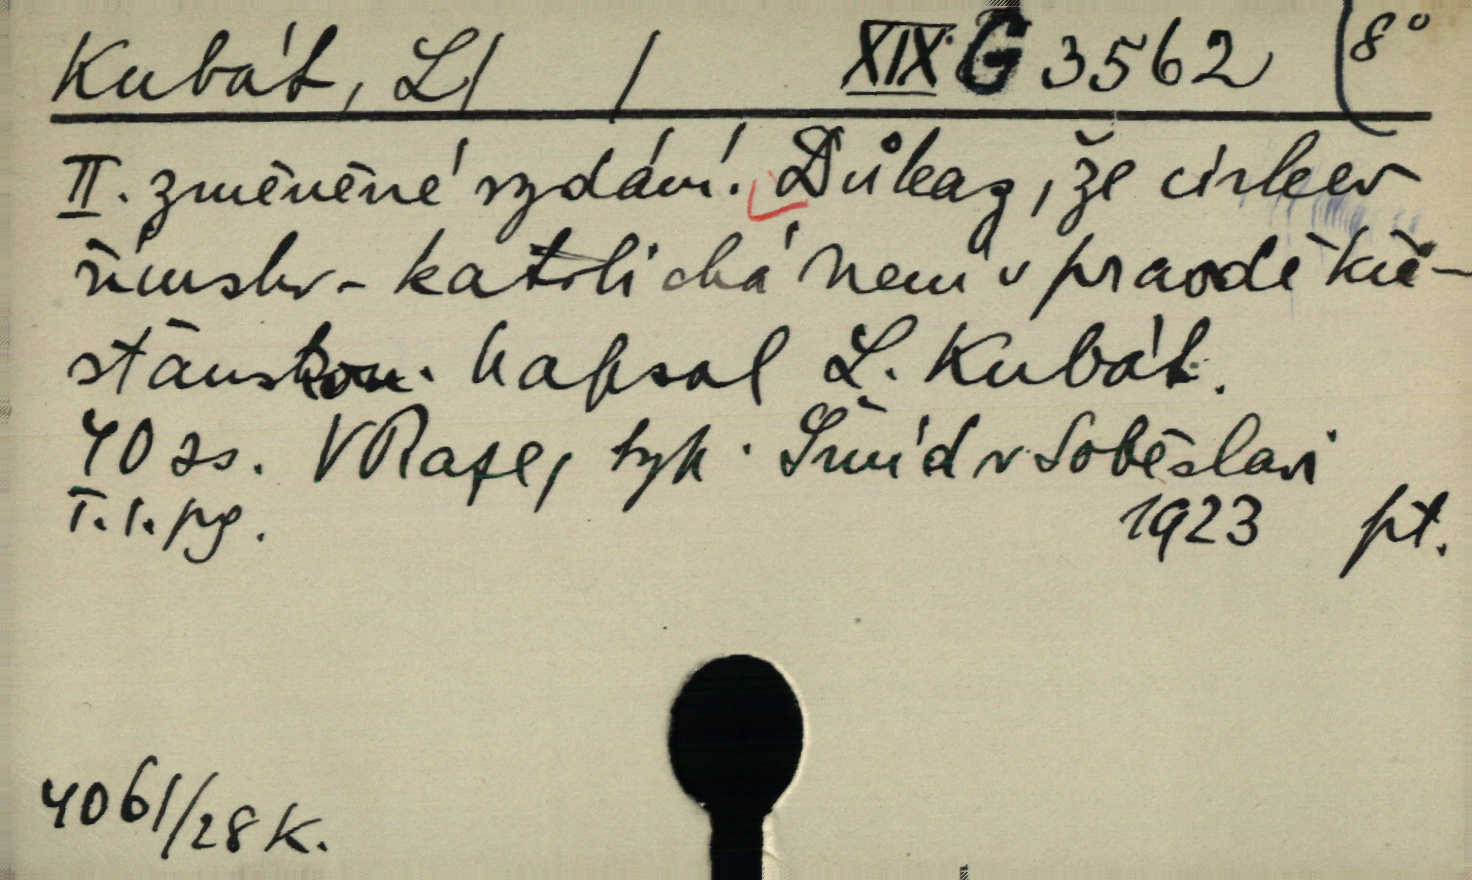 Kubát, L/ / XIX G 3562 (8°
II. změněné vydání. Důkaz, že církev
římsko-katolická není v pravdě kře-
sťanskou. Napsal L. Kubát.
40 ss. V Praze, typ. Šmíd v Soběslavi
T. r. pg. 1923 pt.
4061/28 K.